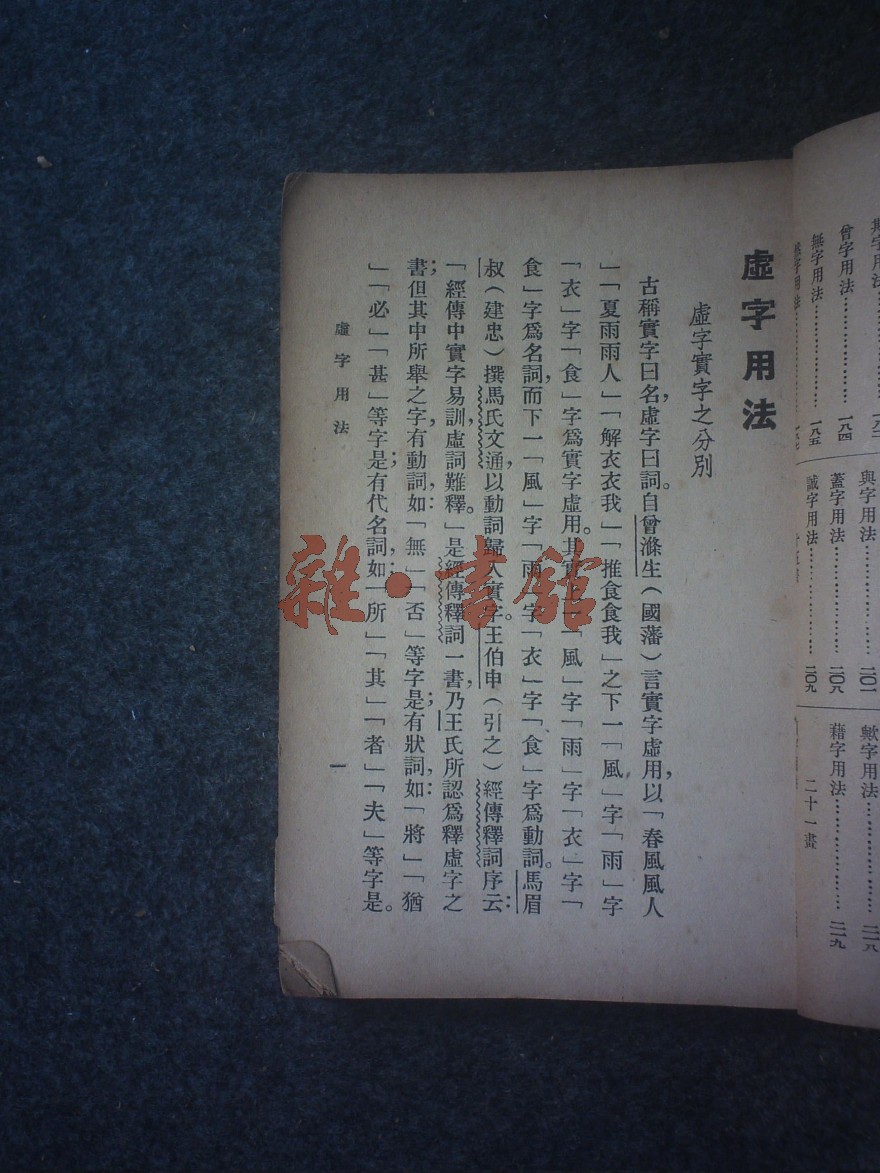 曾字用法………………一八四
無字用法………………一八五
與字用法………………二〇一
蓋字用法………………二〇八
誠字用法………………二〇九
歟字用法………………二一八
藉字用法………………二一九
二十一畫
虛字用法
虛字實字之分別
古稱實字曰名，虛字曰詞。自曾滌生（國藩）言實字虛用，以「春風風人
」「夏雨雨人」「解衣衣我」「推食食我」之下一「風」字「雨」字
「衣」字「食」字爲實字虛用。其實上一「風」字「雨」字「衣」字「
食」字爲名詞，而下一「風」字「雨」字「衣」字「食」字爲動詞。馬眉
叔（建忠）撰馬氏文通，以動詞歸入實字。王伯申（引之）經傳釋詞序云：
「經傳中實字易訓，虛詞難釋。」是經傳釋詞一書，乃王氏所認爲釋虛字之
書；但其中所舉之字，有動詞，如：「無」「否」等字是；有狀詞，如：「將」「猶
」「必」「甚」等字是；有代名詞，如：「所」「其」「者」「夫」等字是。
虛字用法
一
雜·書館